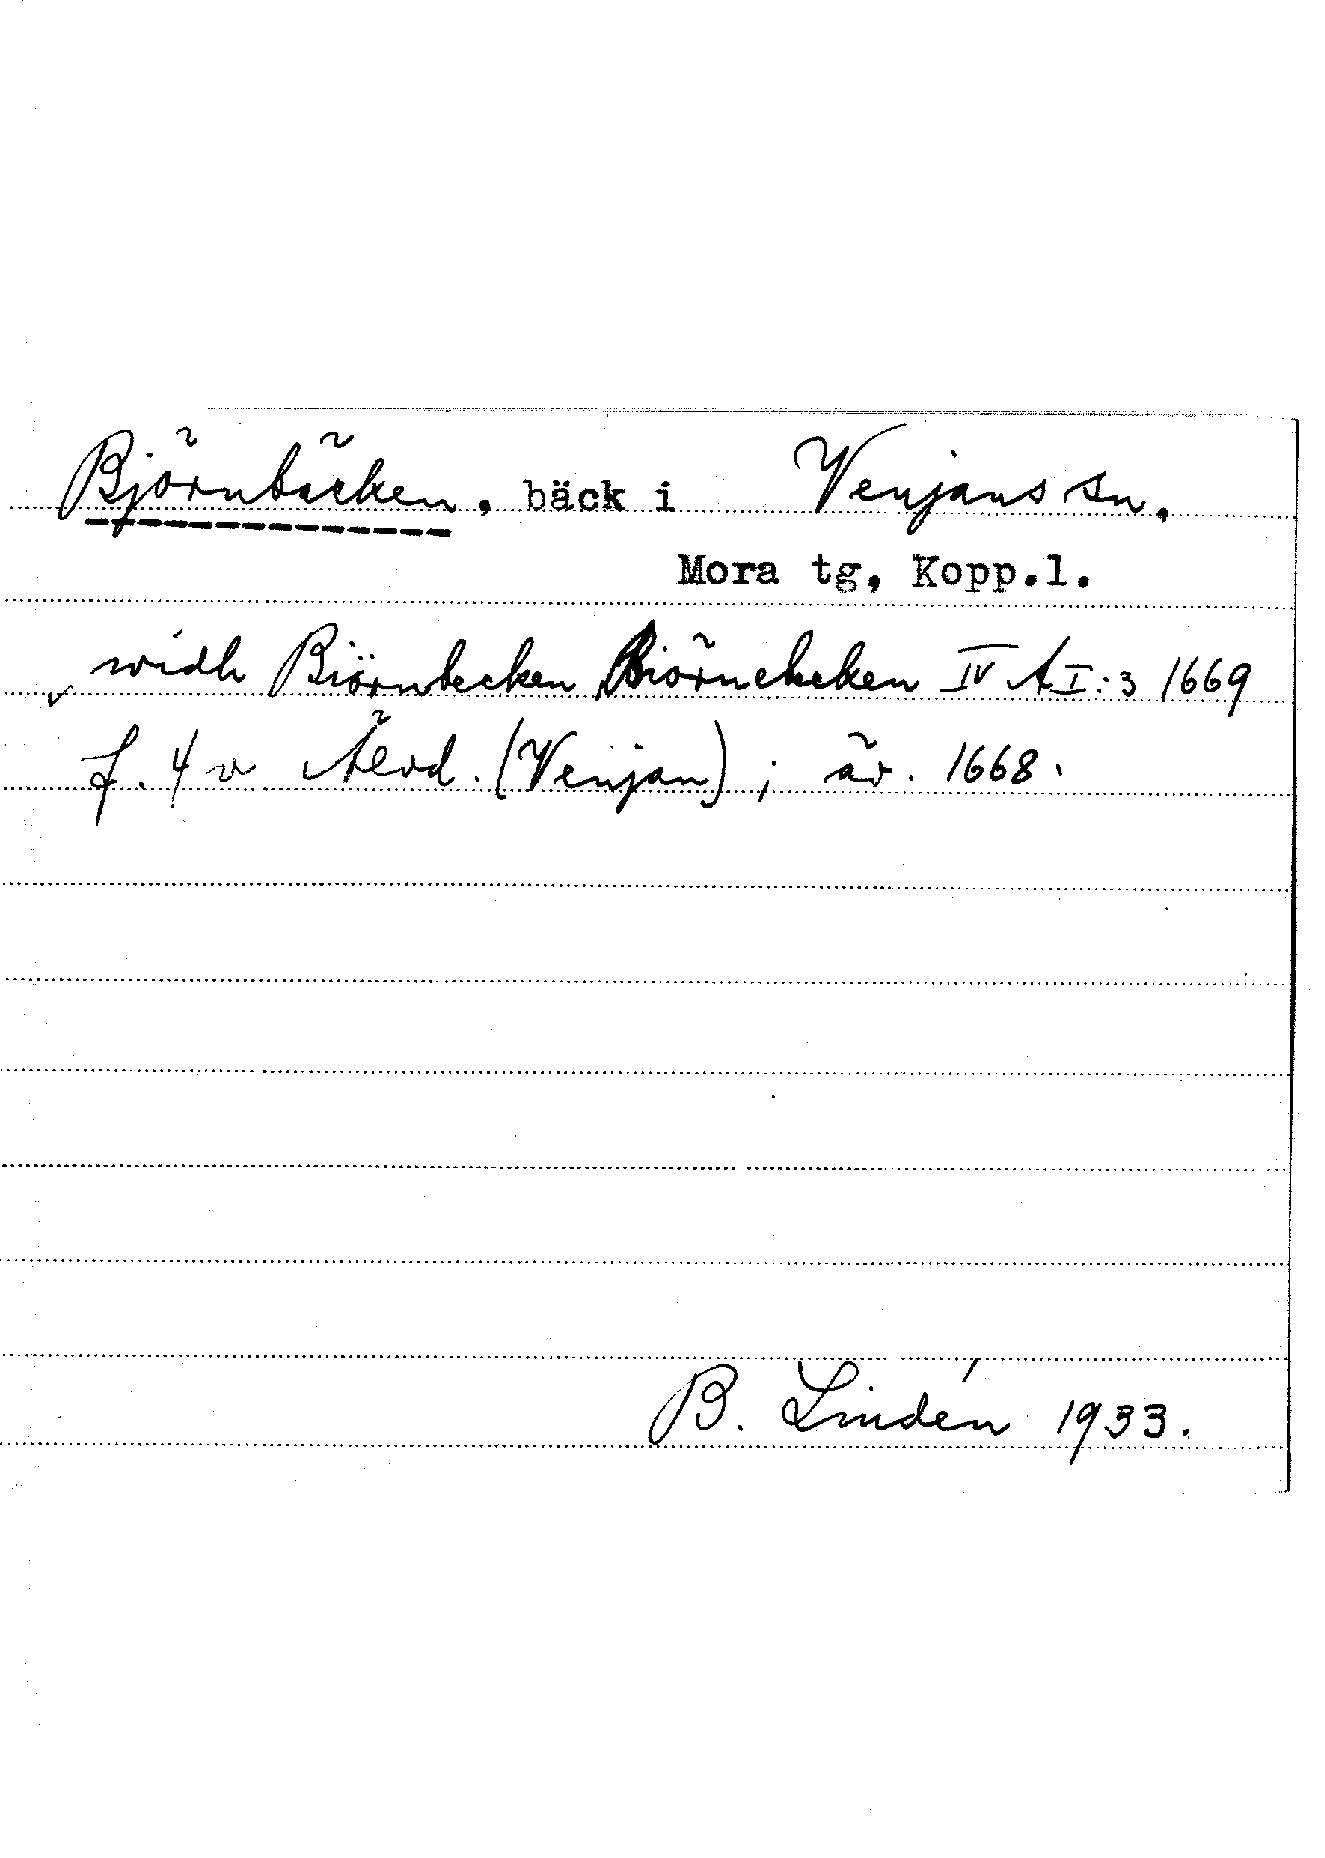 Björnbäcken, bäck i Venjans sn.
Mora tg, Kopp.l.
widh Biörnbecken Biörnebeken IV A I:3 1669
f. 4 v Älvd. (Venjan); är. 1668.
B. Lindén 1933.